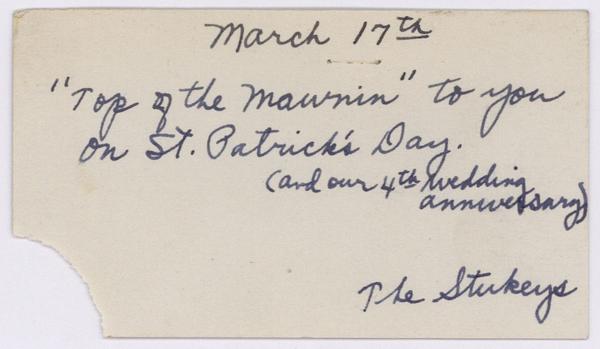 March 17th
"Top of the Mawnin" to you
on St. Patrick's Day.
(and our 4th wedding
anniversary)
The Stukeys